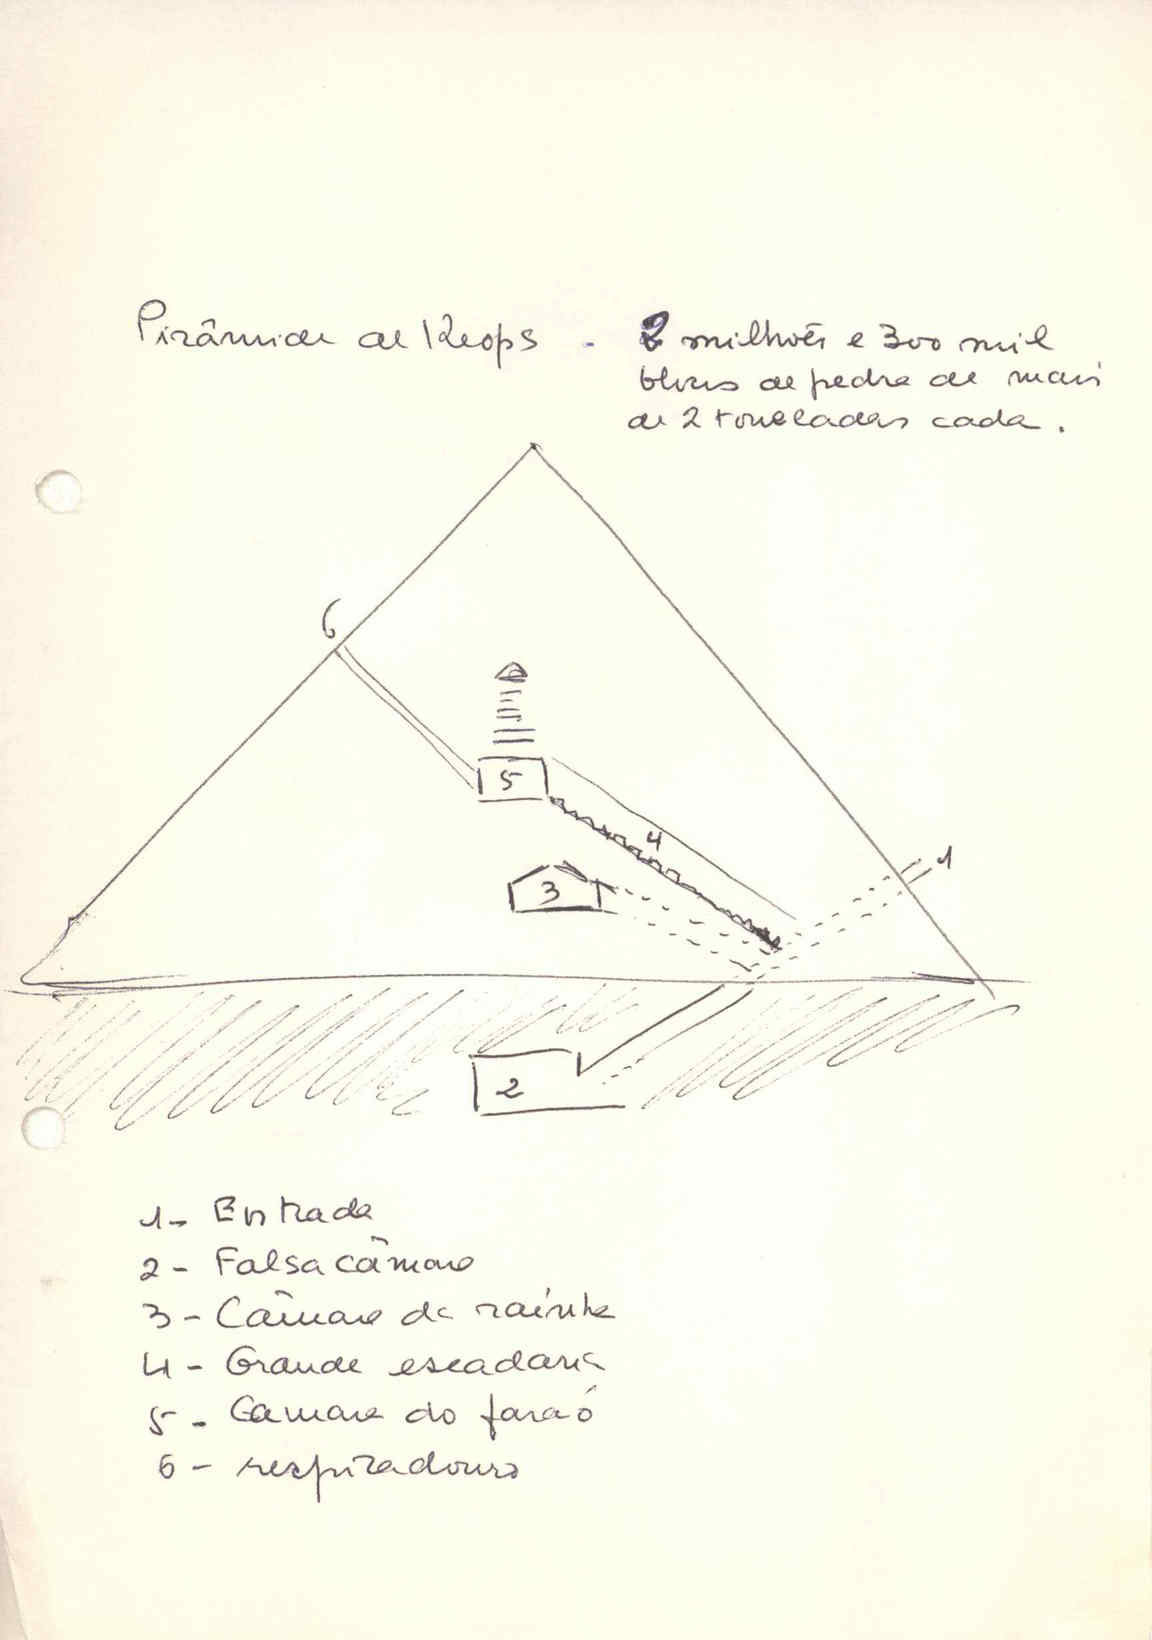 Pirâmide de Keops - 2 milhões e 300 mil
blocos de pedra de mais
de 2 toneladas cada.
6
5
4
1
3
2
1- Entrada
2- Falsa câmara
3- Câmara da rainha
4- Grande escadaria
5- Camara do faraó
6- respiradouro